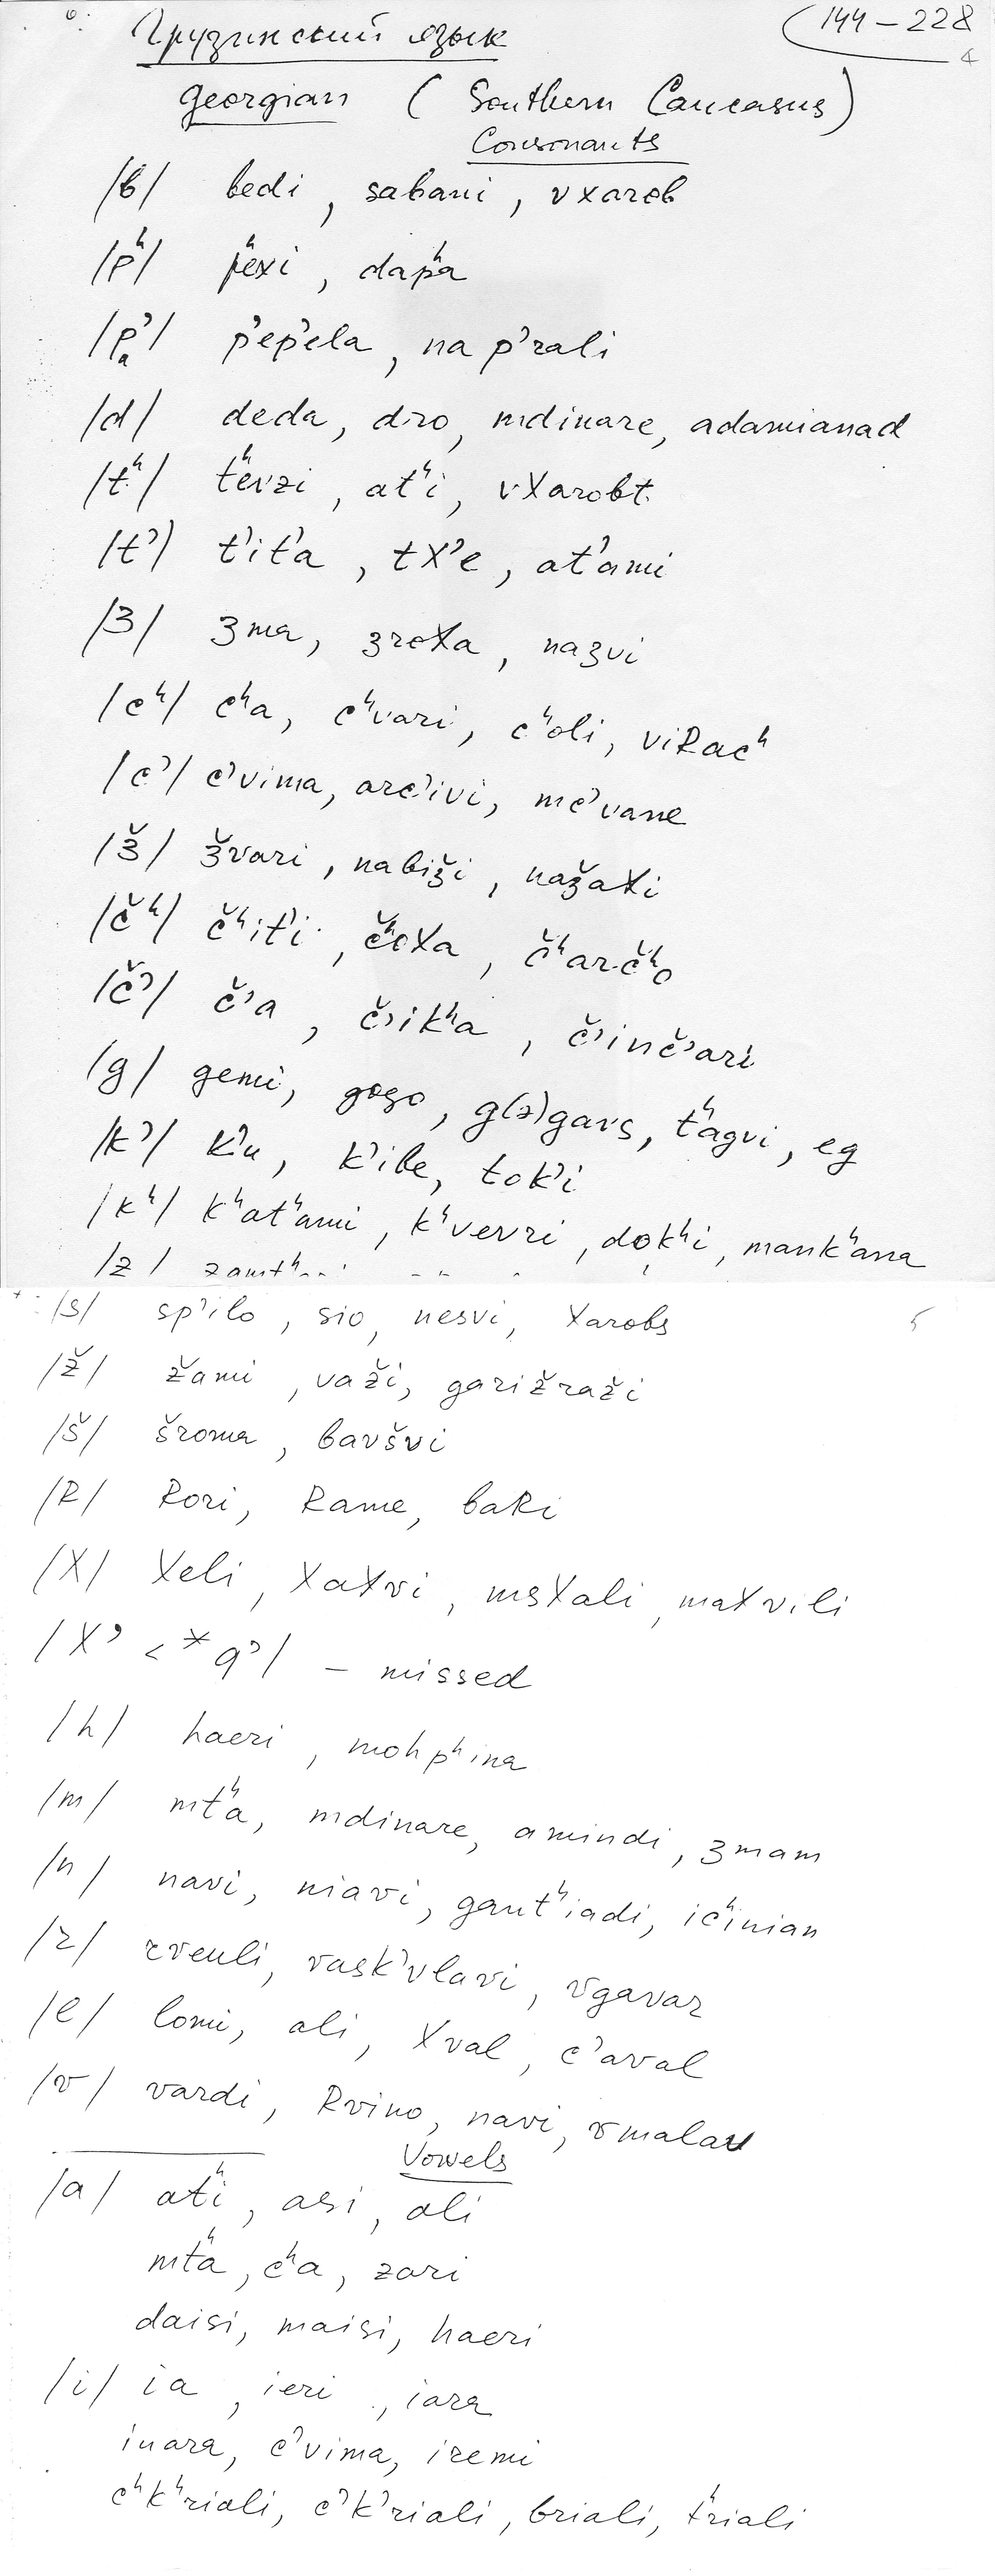 Грузинский язык
144 – 228
4
Georgian (Southern Caucasus)
Consonants
/b/ bedi, sabani, vxarob
/pʰ/ pʰexi, dapʰa
/p’/ p’ep’ela, nap’rali
/d/ deda, dro, mdinare, adamianad
/tʰ/ tʰevzi, atʰi, vXarobt
/t’/ t’it’a, tX’e, at’ami
/ʒ/ ʒma, ʒroXa, naʒvi
/cʰ/ cʰa, cʰvari, cʰoli, viRacʰ
/c’/ c’vima, arc’ivi, mc’vane
/ǯ/ ǯvari, nabiǯi, naǯaXi
/čʰ/ čʰit’i, čʰoXa, čʰarčʰo
/č’/ č’a, č’ikʰa, č’inč’ari
/g/ gemi, gogo, g(ə)gavs, tʰagvi, eg
/k’/ k’u, k’ibe, tok’i
/kʰ/ kʰatʰami, kʰvevri, dokʰi, mankʰana
/z/
/s/ sp’ilo, sio, nesvi, Xarobs
5
/ž/ žami, važi, garižraži
/š/ šroma, bavšvi
/R/ Rori, Rame, baRi
/X/ Xeli, XaXvi, msXali, maXvili
/X’ < *q’/ – missed
/h/ haeri, mohpʰina
/m/ mtʰa, mdinare, amindi, ʒmam
/n/ navi, niavi, gantʰiadi, icʰinian
/r/ rveuli, vask’vlavi, vgavar
/l/ lomi, ali, Xval, c’aval
/v/ vardi, Rvino, navi, vmalav
Vowels
/a/ atʰi, asi, ali
mtʰa, cʰa, zari
daisi, maisi, haeri
/i/ ia, ieri, iara
inara, c’vima, iremi
cʰkʰriali, c’k’riali, briali, tʰriali